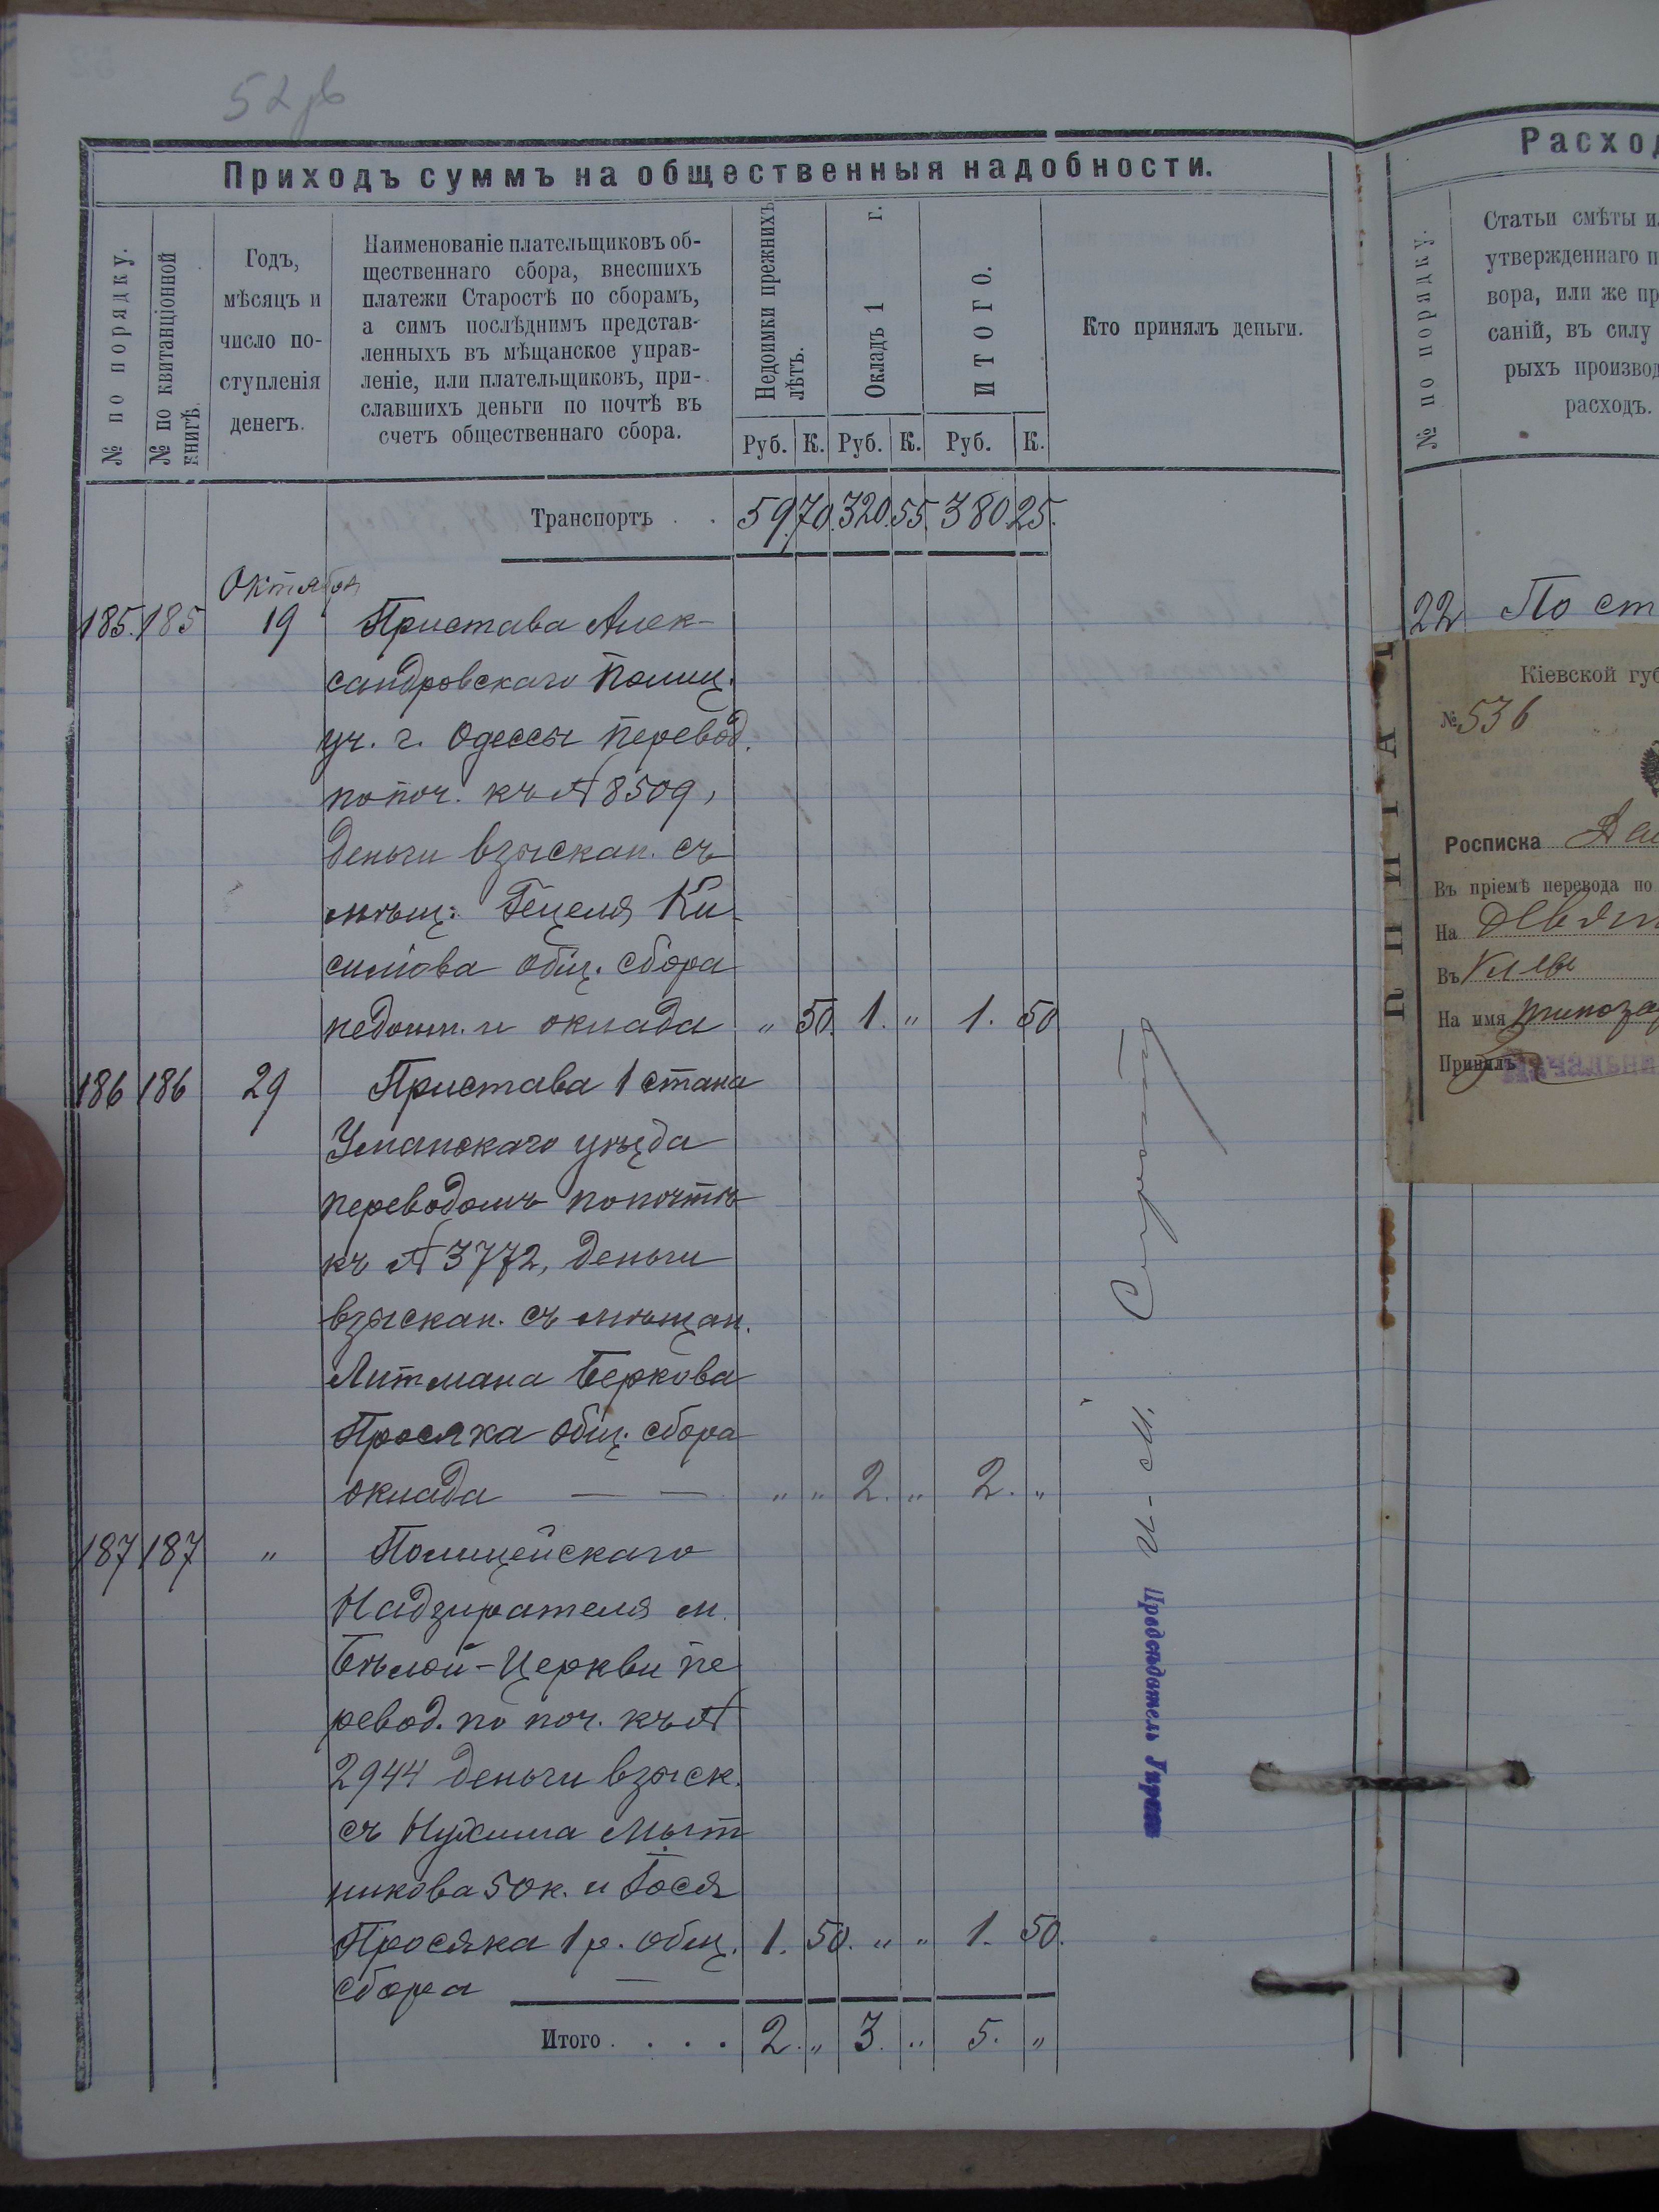 52 зв
Приходъ суммъ на общественныя надобности.
№ по порядку.
№ по квитанціонной книгѣ.
Годъ,
мѣсяцъ и
число по-
ступленія
денегъ.
Наименованіе плательщиковъ об-
щественнаго сбора, внесшихъ
платежи Старостѣ по сборамъ,
а симъ послѣднимъ представ-
ленныхъ въ мѣщанское управ-
леніе, или плательщиковъ, при-
славшихъ деньги по почтѣ въ
счетъ общественнаго сбора.
Недоимки прежнихъ
лѣтъ.
Окладъ 1 г.
ИТОГО.
Кто принялъ деньги.
Руб. К. Руб. К. Руб. К.
Транспортъ . . 59 70. 320. 55. 380 25.
Октября
185. 185 19 Пристава Алек-
сандровскаго Полиц.
уч. г. Одессы перевод.
по поч. къ № 8509,
деньги взыскан. съ
мѣщ: Гецеля Ки-
симова общ. сбора
недоим. и оклада „ 50. 1. „ 1. 50
186 186 29 Пристава 1 стана
Уманскаго уѣзда
переводомъ по почтѣ
къ № 3772, деньги
взыскан. съ мѣщан.
Литмана Беркова
Просяка общ. сбора
оклада — — „ „ 2. „ 2. „
187 187 „ Полицейскаго
Надзирателя м.
Бѣлой-Церкви пе
ревод. по поч. къ №
2944 деньги взыск.
съ Нухима Мыт
никова 50 к. и Гося
Просяка 1 р. общ. 1. 50. „ „ 1. 50.
сбора —
Итого . . . . 2. „ 3. „ 5. „
И-М.
Предсѣдатель
Расход
№ по порядку.
Статьи смѣты и
утвержденнаго п
вора, или же пр
саній, въ силу
рыхъ производ
расходъ.
22 По ст
Кіевской губ
№ 536
Росписка
Въ пріемѣ перевода по
На
Въ Кіевъ
На имя
Принялъ